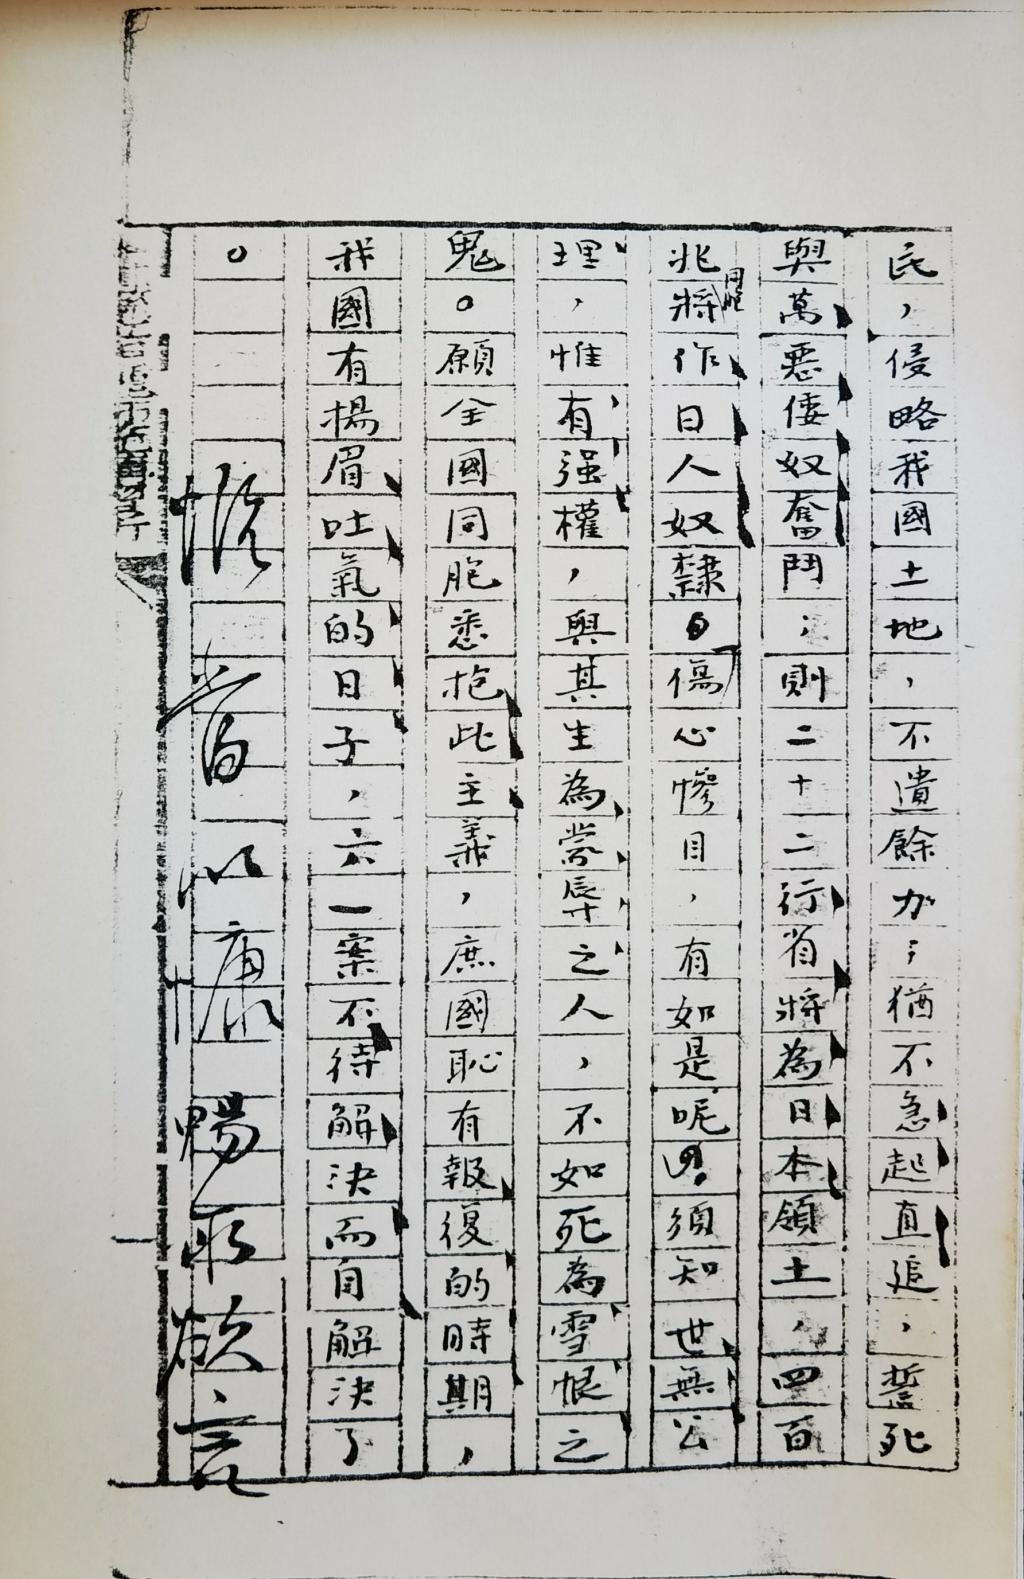 民，侵略我國土地，不遺餘力；猶不急起直追，誓死
與萬惡倭奴奮鬥；則二十二行省將為日本領土，四百
兆同胞將作日人奴隸。傷心慘目，有如是呢。須知世無公
理，惟有强權，與其生為蒙辱之人，不如死為雪恨之
鬼。願全國同胞悉抱此主義，庶國恥有報復的時期，
我國有揚眉吐氣的日子，六一案不待解決而自解決了
。
慷慨 暢所欲言